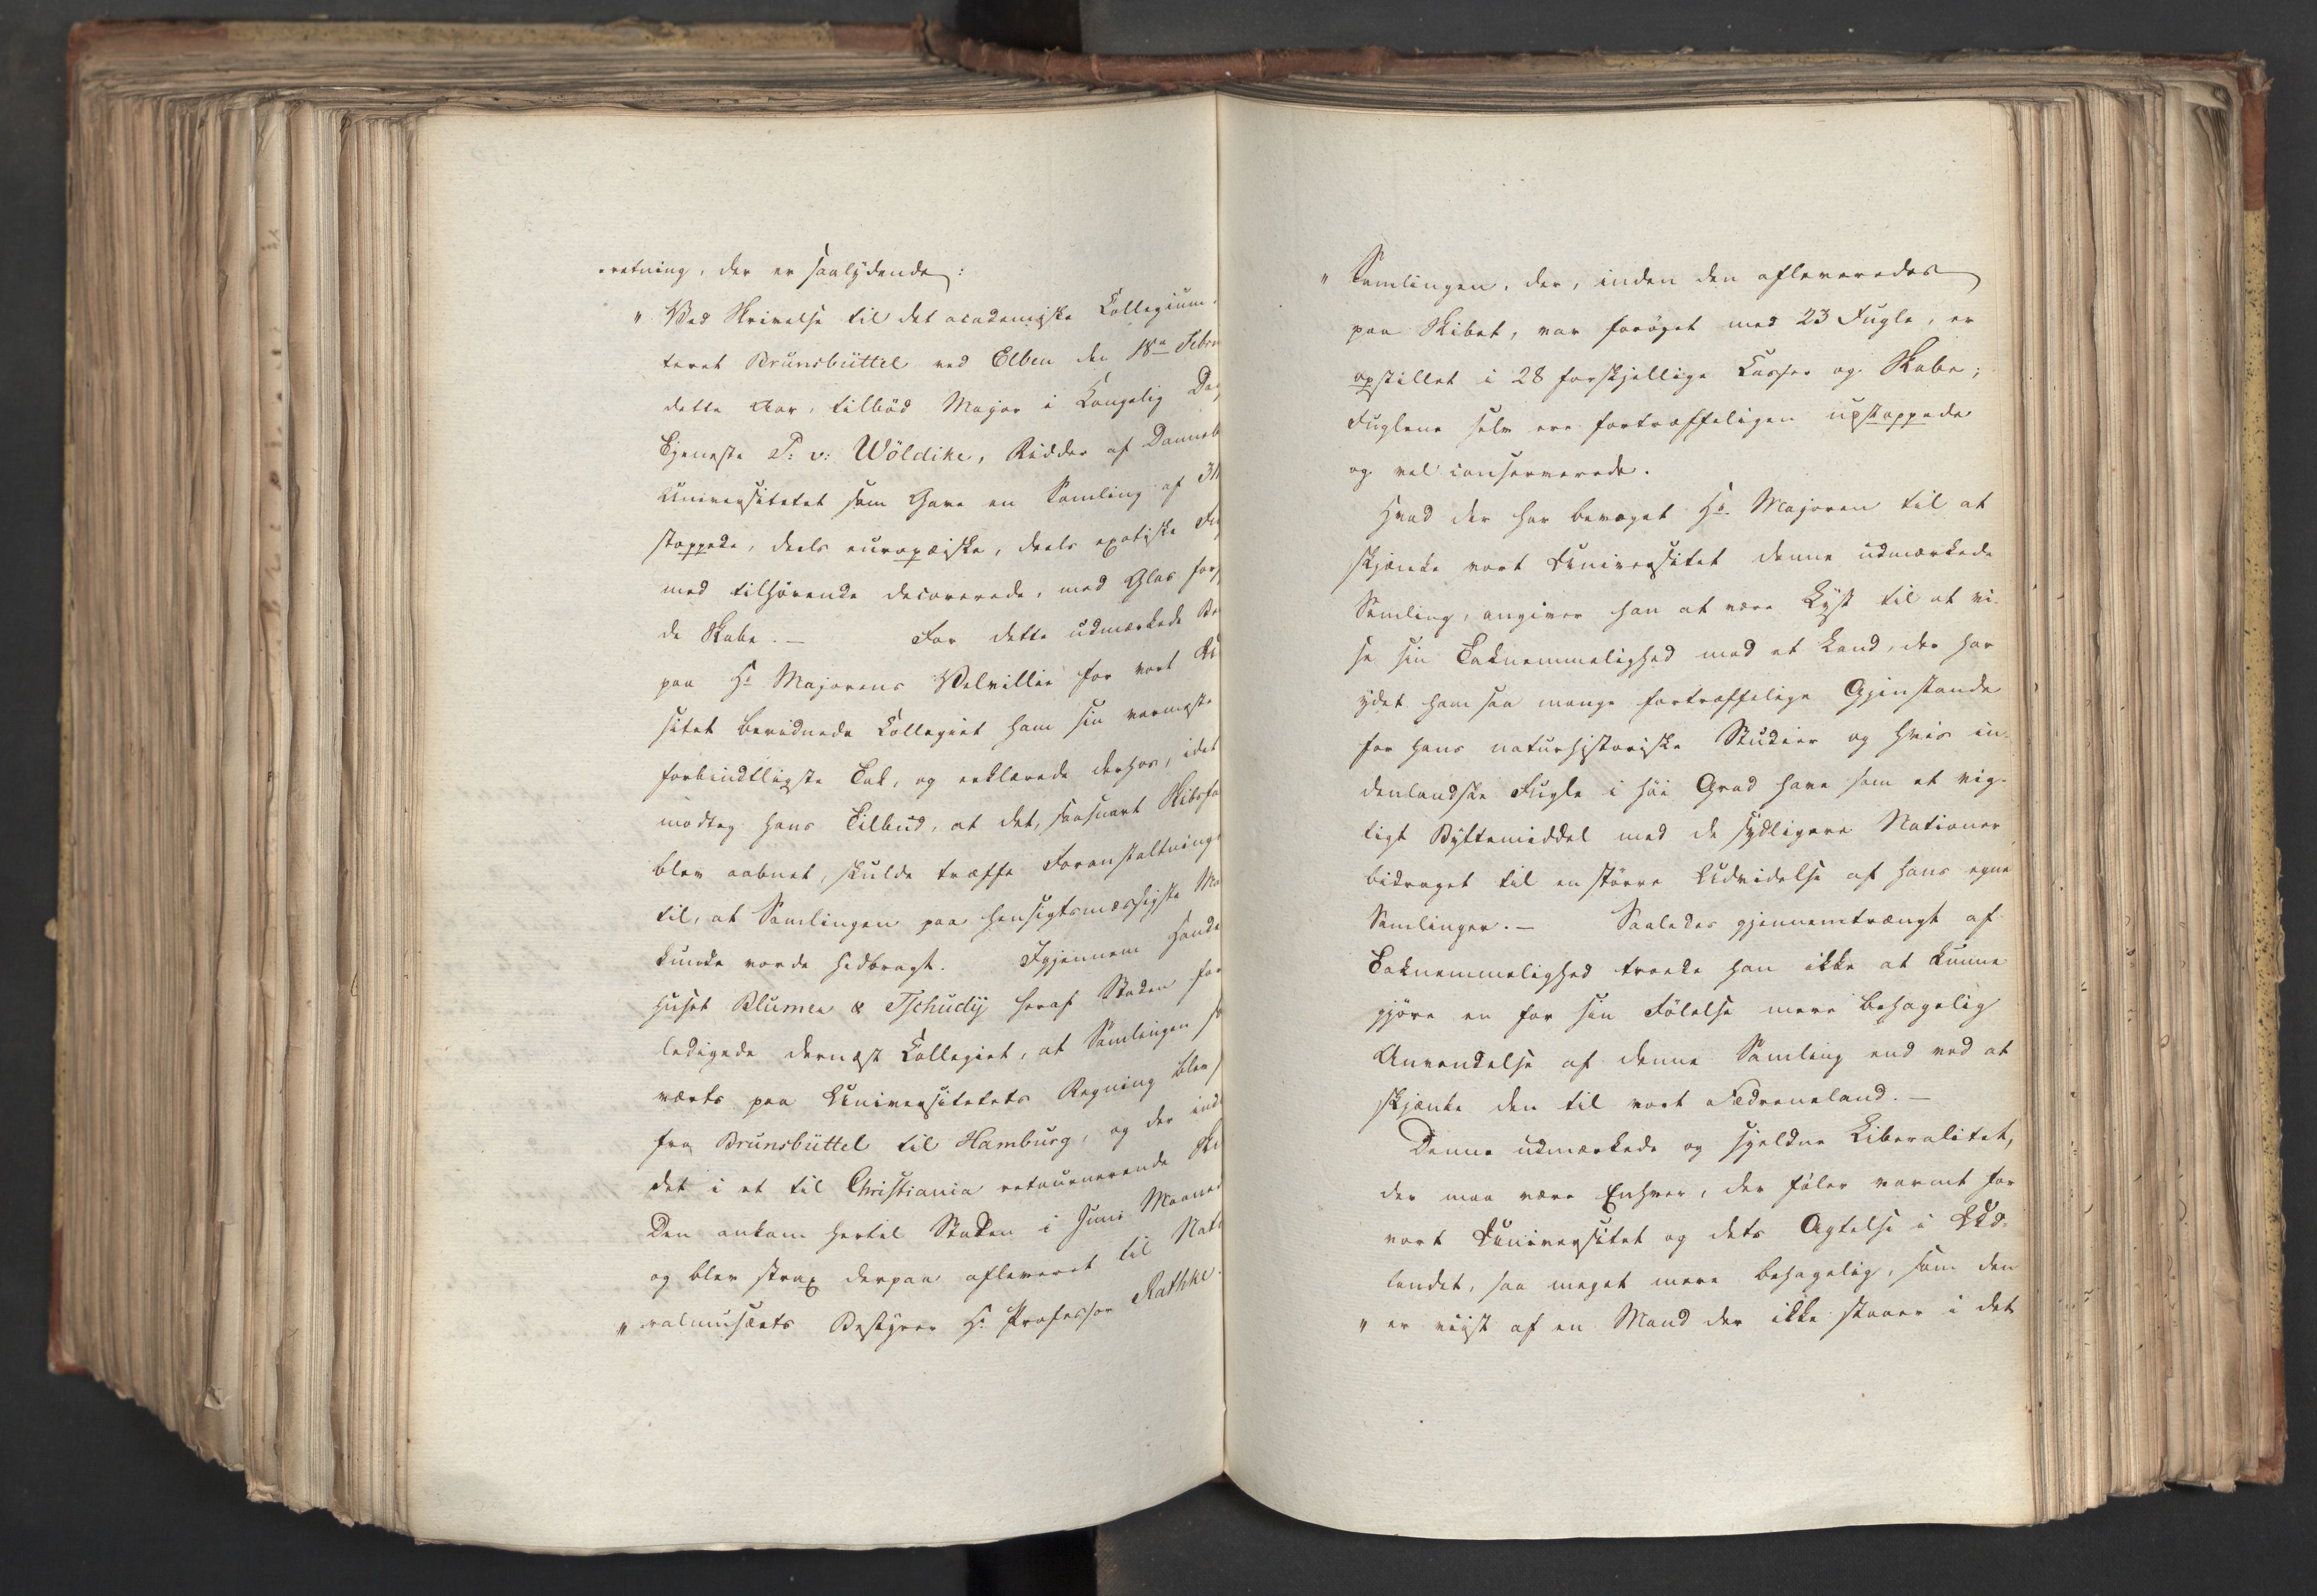 retning, der er saalydende:
" Ved Skrivelse til det academiske Collegium,
teret Brunsbüttel ved Elben den 18de Febru
dette Aar, tilbød Major i Kongelig Da
Tjeneste P: v: Wöldike, Ridder af Danneb
Universitetet som Gave en Samling af
stoppede, deels europæiske, deels exotiske Fu
med tilhørende decorerede, med Glas fors
de Skabe. — For dette udmærkede Be
paa Hr Majorens Velvillie for vort
sitet bevidnede Collegiet ham sin varmeste
forbindtligste Tak, og erklærede derhos, idet
modtog hans Tilbud, at det, saasnart Skibsfa
blev aabnet, skulde træffe Foranstaltning
til, at Samlingen paa hensigtsmæssigste Ma
kunde vorde hidbragt. Igjennem Hande
huset Blumen & Tschudy heraf Staden for
ledigede dernæst Collegiet, at Samlingen
værts paa Universitetets Regning blev
fra Brunsbüttel til Hamburg, og der ind
det i et til Christiania retournerende Ski
Den ankom hertil Staden i Juni Maaned
og blev strax derpaa afleveret til Natu
" ralmusæets Bestyrer Hr Professor Rathke.
" Samlingen, der, inden den afleveredes
paa Skibet, var forøget med 23 Fugle, er
opstillet i 28 forskjellige Kasser og Skabe;
Fuglene selv ere fortræffeligen upstoppede
og vel conserverede.
Hvad der har bevæget Hr. Majoren til at
skjænke vort Universitet denne udmærkede
Samling, angiver han at være Lyst til at vi-
se sin Taknemmelighed mod et Land, der har
ydet ham saa mange fortræffelige Gjenstande
for hans naturhistoriske Studier og hvis in-
denlandske Fugle i høi Grad have som et vig-
tigt Byttemiddel med de sydligere Nationer
bidraget til en større Udvidelse af hans egne
Samlinger. — Saaledes gjennemtrængt af
Taknemmelighed troede han ikke at kunne
gjøre en for sin Følelse mere behagelig
Anvendelse af denne Samling end ved at
skjænke den til vort Fædreneland. —
Denne udmærkede og sjeldne Liberalitet,
der maa være Enhver, der føler varmt for
vort Universitet og dets Agtelse i Ud-
landet, saa meget mere behagelig, som den
" er viist af en Mand der ikke staaer i det